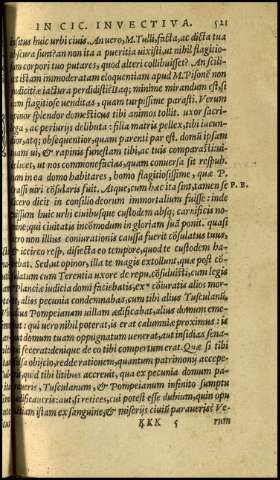 IN CIC. INVECTIVA. 521
issatus huic urbi civis. An vero, M. Tulli, facta, ac dicta tua
obscura sunt? an non ita a pueritia vixisti, ut nihil flagitio-
sum corpori tuo putares, quod alteri collibuisset? An scili-
cet istam immoderatam eloquentiam apud M. Pisonē non
pudicitiæ iactura perdidicisti? itaq; minime mirandum est, si
eam flagitiose venditas, quam turpissime parasti. Verum
opinor splendor domesticus tibi animos tollit. uxor sacri-
lega, ac periuriis delibuta: filia matris pellex, tibi iucun-
dior, atq; obsequentior, quam parenti par est. domū ipsam
tuam vi, & rapinis funestam tibi, ac tuis comparasti: vi-
delicet, ut nos commonefacias, quam conversa sit respub.
cum in ea domo habitares, homo flagitiosissime, quæ P.
Crassi viri cōsularis fuit. Atque, cum hæc ita sint, tamen se P. B.
Cicero dicit in consilio deorum immortalium fuisse: inde
missum huic urbi civibusque custodem absq; carnificis no-
mine: qui civitatis incōmodum in gloriam suā ponit. quasi
vero non illius coniurationis caussa fuerit cōsulatus tuus,
et iccirco resp. disiecta eo tempore, quo te custodem ha-
bebat. Sed, ut opinor, illa te magis extollunt, quæ post cō-
sulatum cum Terentia uxore de repu. cōsuluisti, cum legis
Planciæ iudicia domi faciebatis, ex cōiuratis alios mor-
te, alios pecunia condemnabas: cum tibi alius Tusculanū,
alius Pompeianum villam ædificabat, alius domum eme-
bat: qui vero nihil poterat, is erat calumniæ proximus: is
aut domum tuam oppugnatum venerat, aut insidias sena-
tui fecerat: denique de eo tibi compertum erat. Quæ si tibi
falsa obiicio, redde rationem, quantum patrimonii accepe-
ris, quid tibi litibus accreverit, qua ex pecunia domum pa-
raveris, Tusculanum, & Pompeianum infinito sumptu
ædificaveris: aut, si retices, cui potest esse dubium, quin opu-
lentiam istam ex sanguine, & miseriis civiū paraveris? Ve-
XKK 5 rum